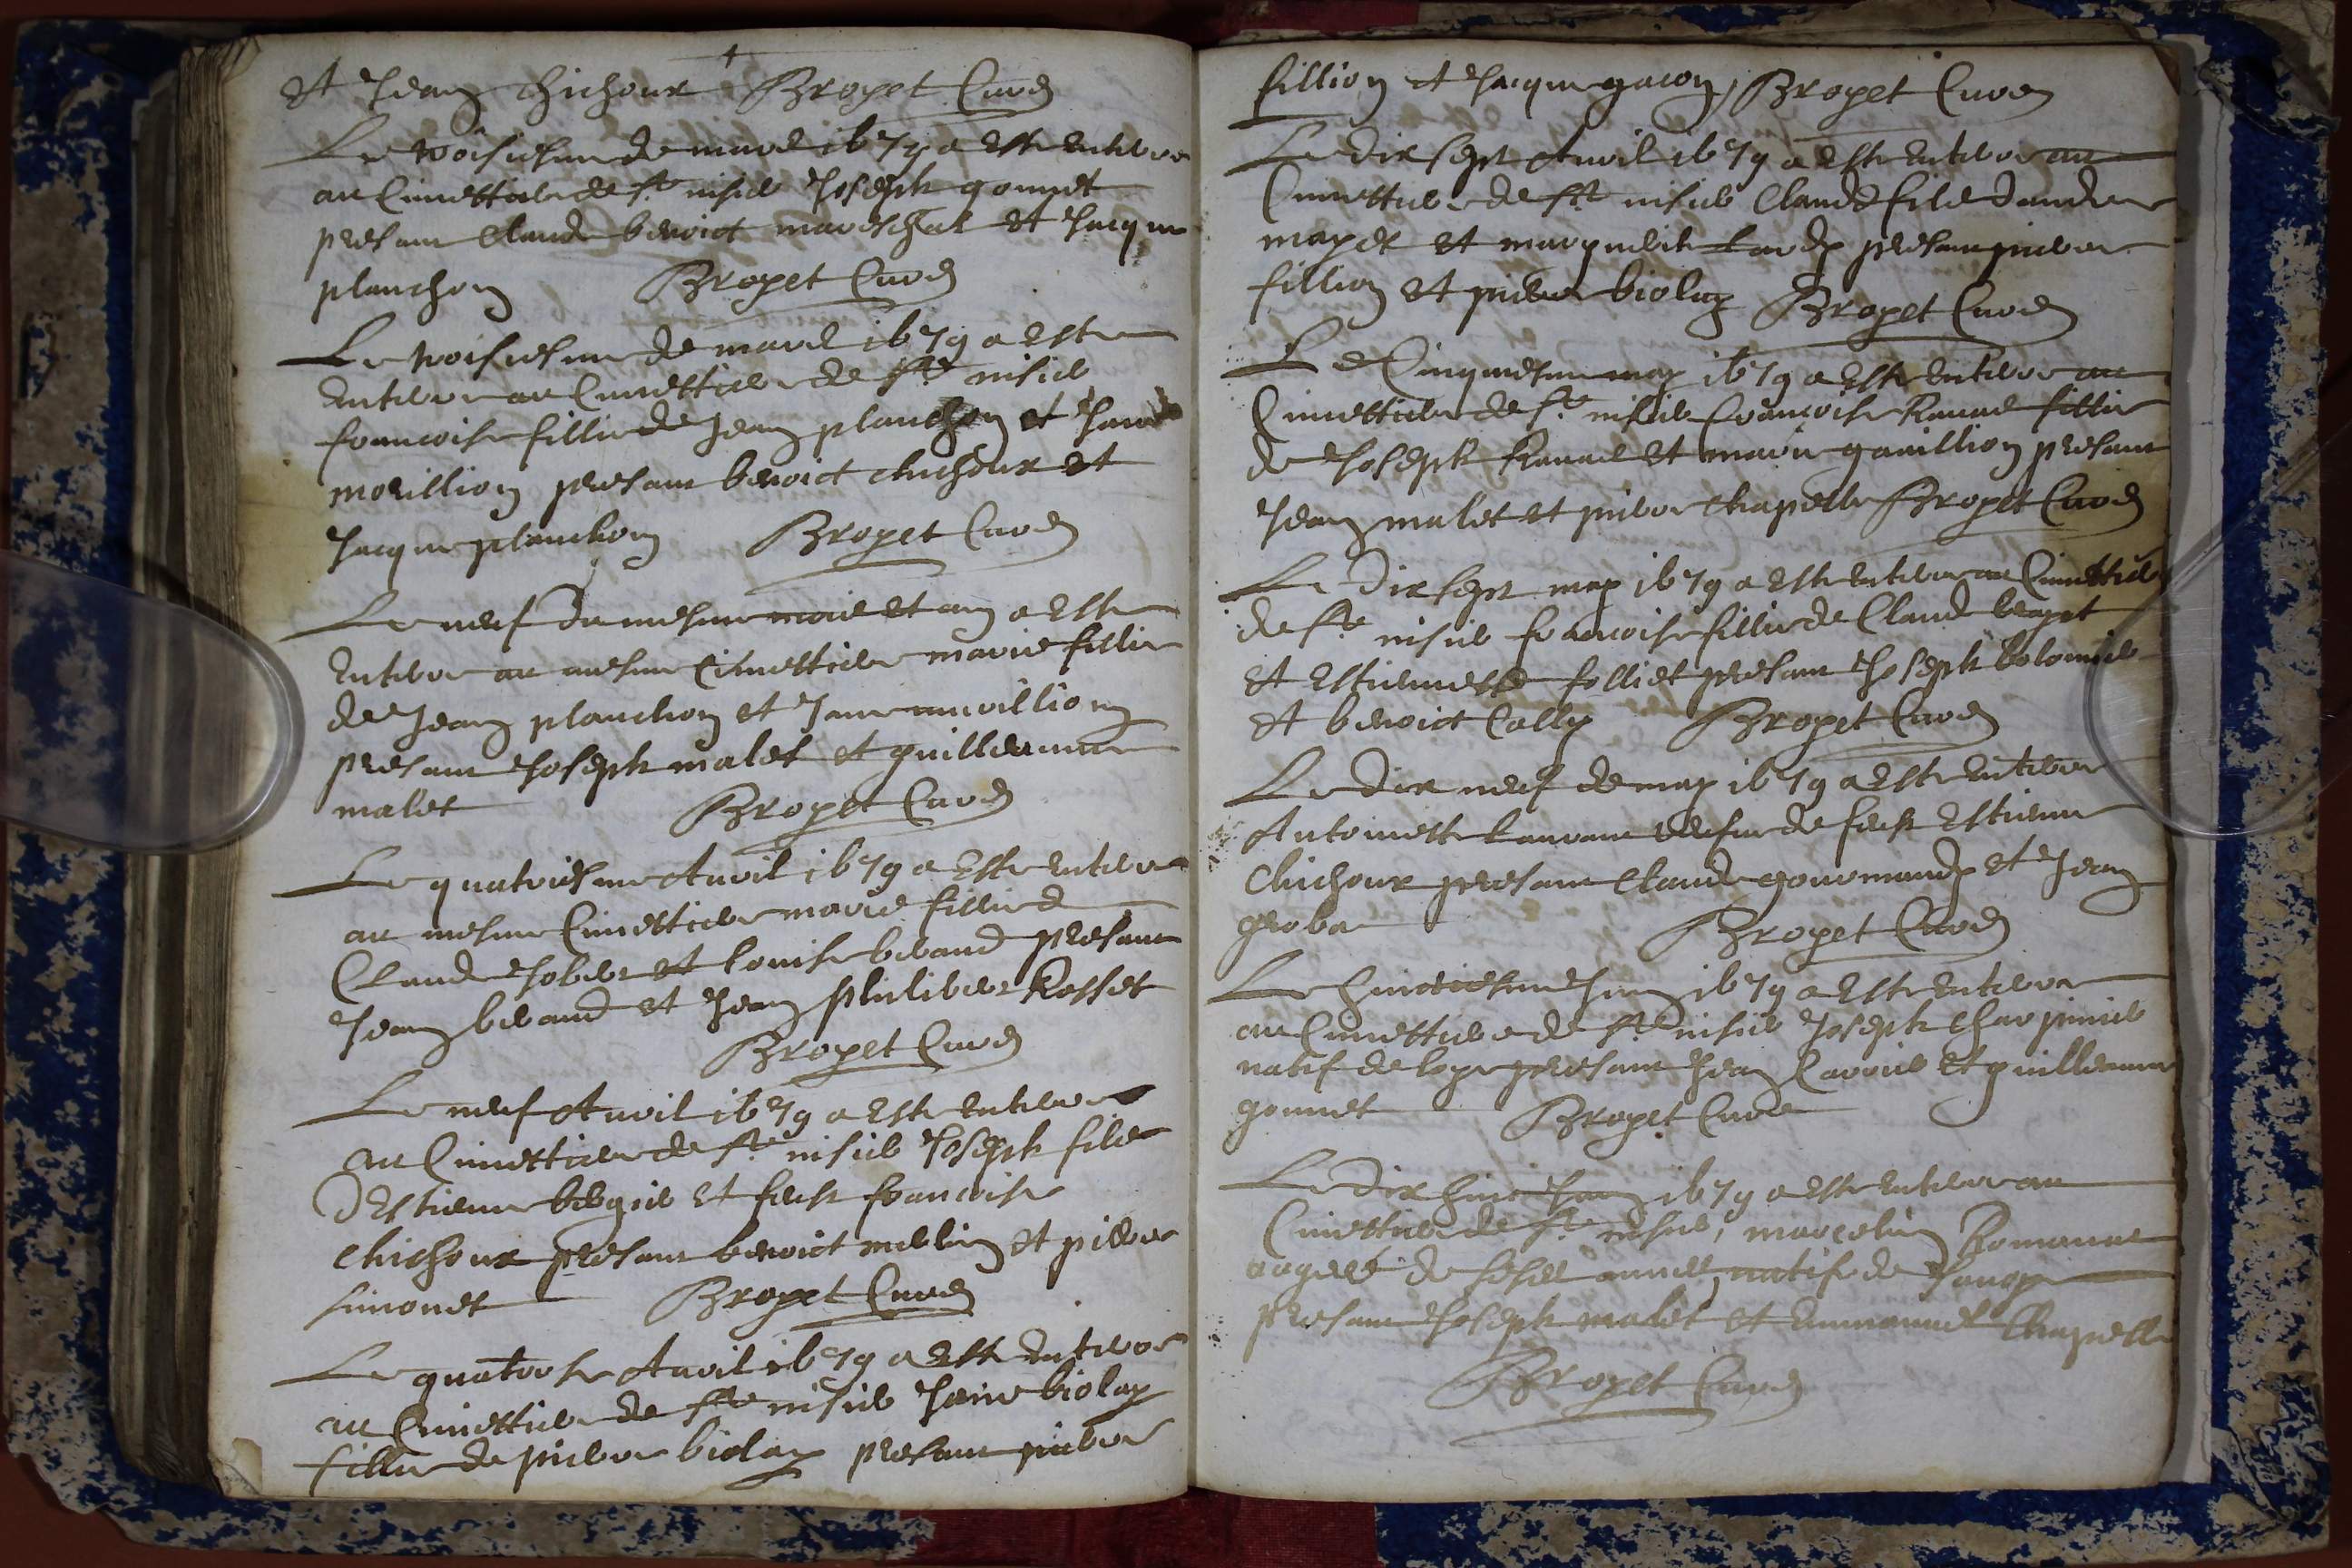 et Jean Chichoux Broyet Curé
Le troisiesme de mars 1679 a esté enterré
au Cimettiere de st nisier Joseph gonnet
presant Claude benoict mareschal et Jacque
planchon Broyet Curé
Le troisiesme de mars 1679 a esté
enterré au Cimettiere de st nisier
francoise fillie de Jean planchon et
morillion presant benoict chichoux et
Jacque planchon Broyet Curé
Le neuf du mesme mois et an a esté
enterré au mesme Cimettiere marie fillie
de Jean planchon et Jane
presant Joseph malet et guillermme
malet Broyet Curé
Le quatriesme Avril 1679 a esté enterré
au mesme Cimettiere marie fillie de
Claude Jober et Louise beraud presant
Jean beraud et Jean philiber Rosset
Broyet Curé
Le neuf Avril 1679 a esté enterré
au Cimettiere de st nisier Joseph fils
d'Estienne bergier et feust francoise
chichoux presant benoict mellin et pierre
simonet Broyet Curé
Le quatorse Avril 1679 a esté enterré
au Cimettiere de st nisier Jane biolay
fillie de pierre biolay presant pierre
fillion et Jacque gacon Broyet Curé
Le dix sept Avril 1679 a esté enterré au
Cimettiere de st nisier Claude fils d'andre
mayet et marguerite presant pierre
fillion et pierre biolay Broyet Curé
Le Cinquiesme may 1679 a esté enterré au
Cimettiere de st nisier francoise Ravas fillie
de Joseph Ravas et marie gavillion presant
Jean malet et pierre Chapelle Broyet Curé
Le dix sept may 1679 a esté enterré au Cimettiere
de st nisier francoise fillie de Claude
et Estiennette folliet presant Joseph
et benoict Colly Broyet Curé
Le dix neuf de may 1679 a esté enterré
Antoinette vefve de feust Estienne
Chichoux presant Claude gourmand et Jean
groba Broyet Curé
Le huictiesme Juin 1679 a esté enterré
au Cimettiere de st nisier Joseph charpinier
natif de presant Jean Carrier et guillermme
gonnet Broyet Curé
Le dix huict Juin 1679 a esté enterré au
Cimettiere de st nisier, marcelin Romanas
aagé de natif de
presant Joseph malet et Emmanuel Chapelle
Broyet Curé